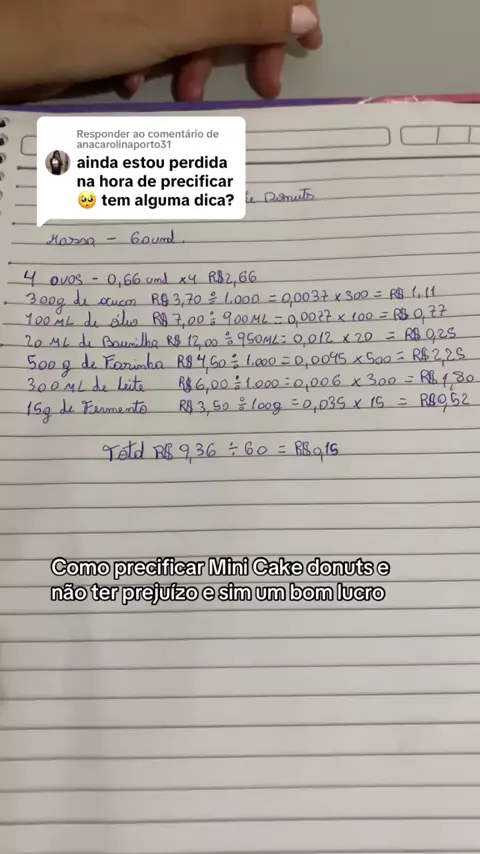 Responder ao comentário de
anacarolinaporto31
ainda estou perdida
na hora de precificar
🥺 tem alguma dica?
Donuts
Massa - 60 und.
4 ovos - 0,66 und x4 R$2,66
300g de açucar R$ 3,70 ÷ 1.000 = 0,0037 x 300 = R$ 1,11
100 ML de óleo R$ 7,00 ÷ 900ML = 0,0077 x 100 = R$ 0,77
20 ML de Baunilha R$ 12,00 ÷ 950ML = 0,012 x 20 = R$ 0,25
500 g de Farinha R$ 4,50 ÷ 1.000 = 0,0045 x 500 = R$ 2,25
300 ML de leite R$ 6,00 ÷ 1.000 = 0,006 x 300 = R$ 1,80
15g de Fermento R$ 3,50 ÷ 100g = 0,035 x 15 = R$0,52
Total R$ 9,36 ÷ 60 = R$ 0,15
Como precificar Mini Cake donuts e
não ter prejuízo e sim um bom lucro